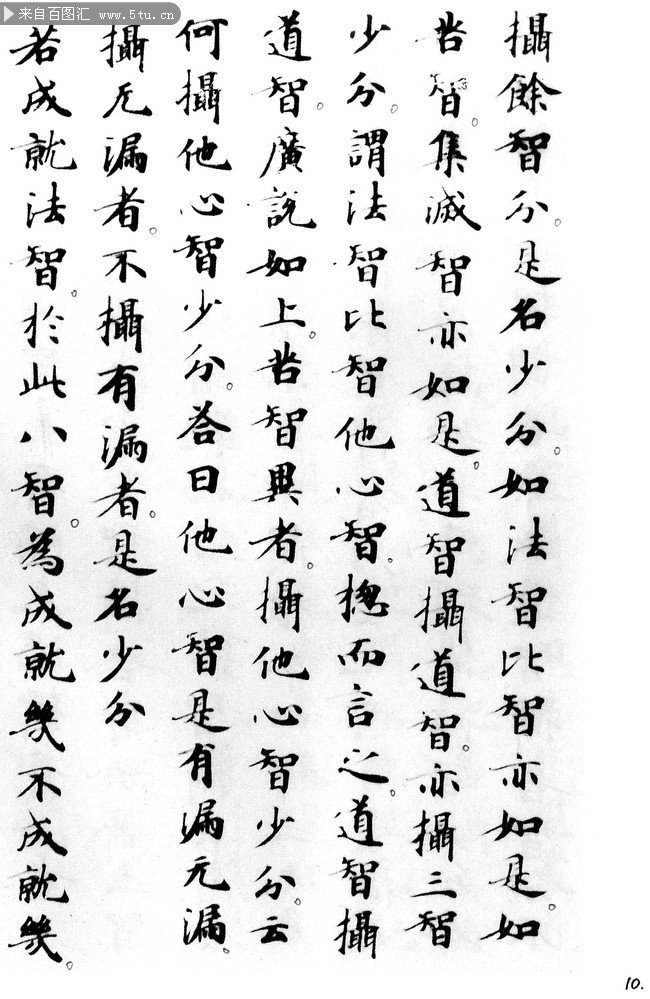 来自百图汇 www.5tu.cn
攝餘智分。是名少分。如法智比智亦如是。如
苦智。集滅智亦如是。道智攝道智。亦攝三智
少分。謂法智比智他心智。揔而言之。道智攝
道智。廣說如上。苦智異者。攝他心智少分。云
何攝他心智少分。荅曰他心智是有漏无漏。
攝无漏者。不攝有漏者。是名少分
若成就法智。於此八智。為成就幾不成就幾。
10.